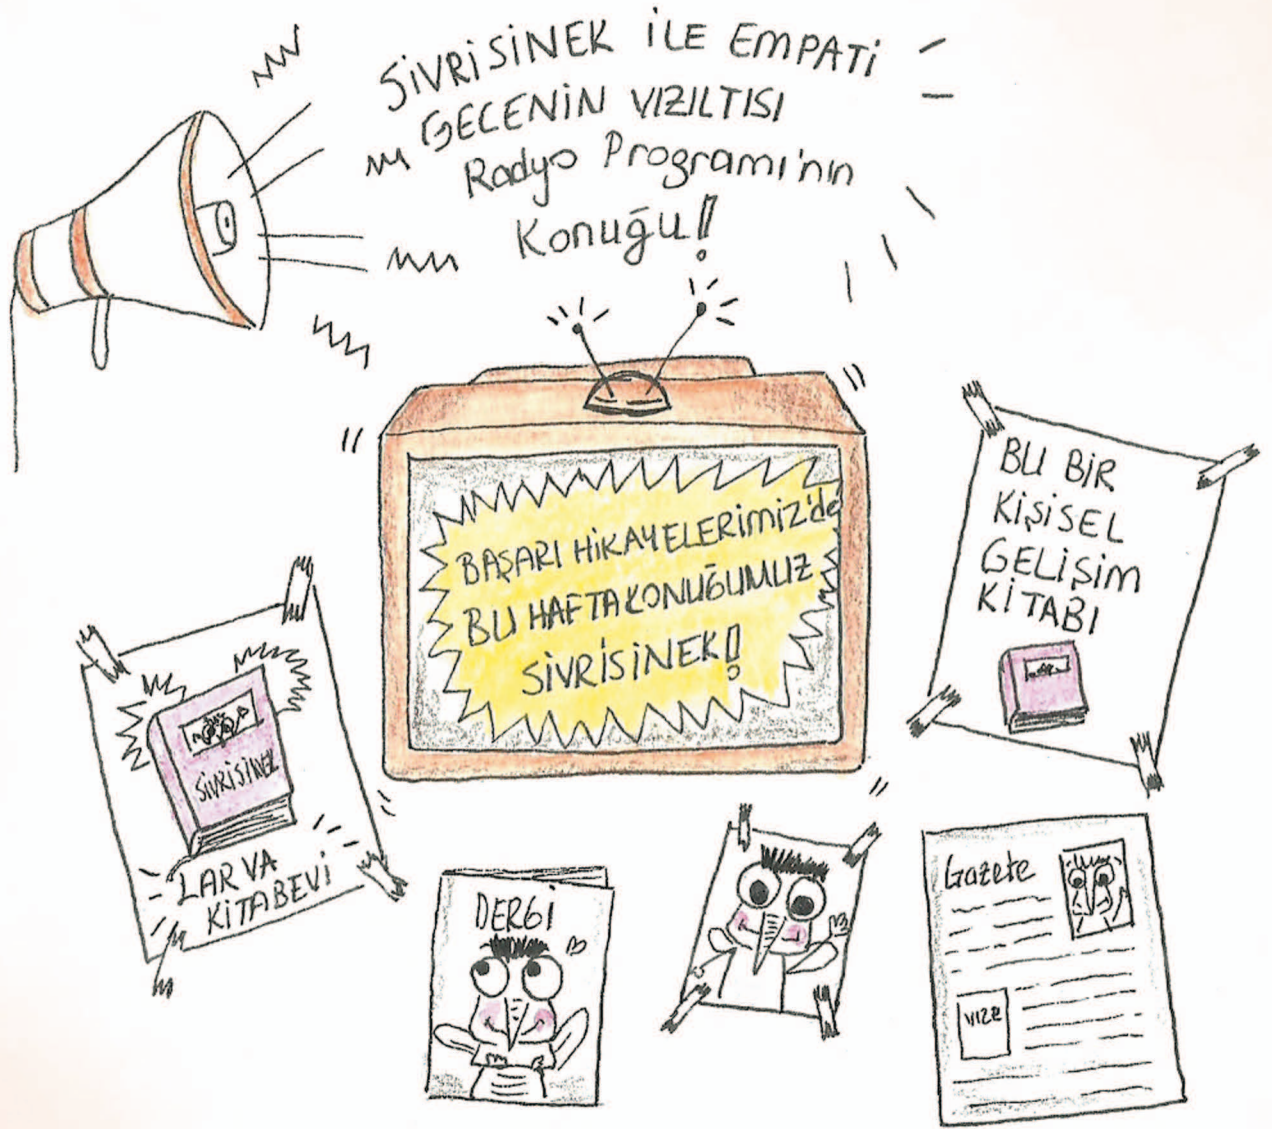 SİVRİSİNEK İLE EMPATİ
GECENİN VIZILTISI
Radyo Programı'nın
Konuğu!
BAŞARI HİKAYELERİMİZ'de
BU HAFTA KONUĞUMUZ
SİVRİSİNEK!
BU BİR
KİŞİSEL
GELİŞİM
KİTABI
SİVRİSİNEK
LARVA
KİTABEVİ
DERGİ
Gazete
VIZZ